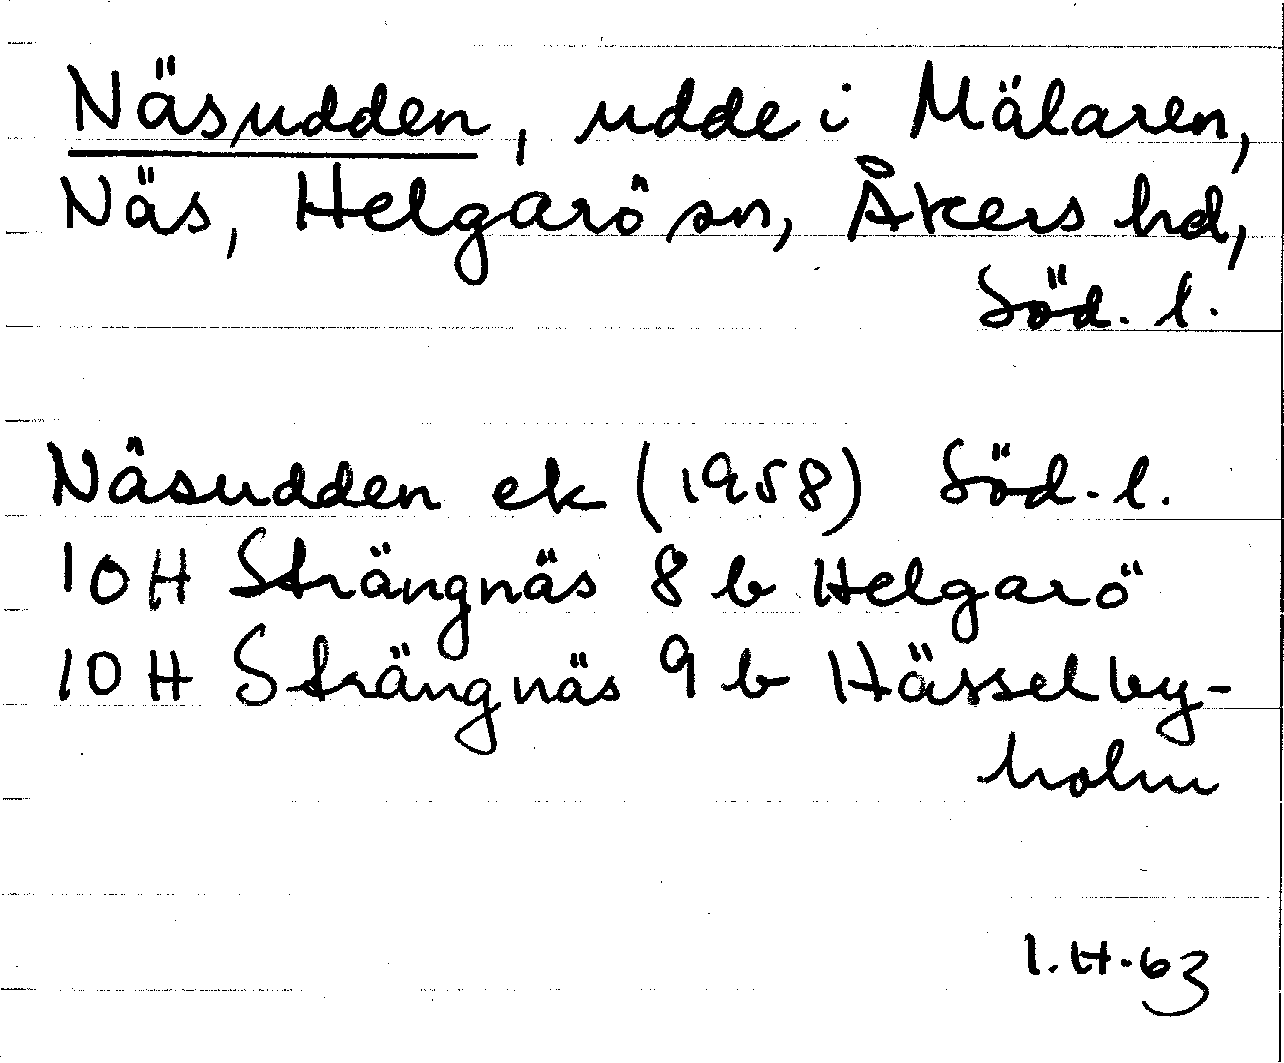 Näsudden, udde i Mälaren,
Näs, Helgarö sn, Åkers hd,
Söd. l.
Näsudden ek (1958) Söd. l.
10 H Strängnäs 8 b Helgarö
10 H Strängnäs 9 b Hässelby-
holm
I.H. 63